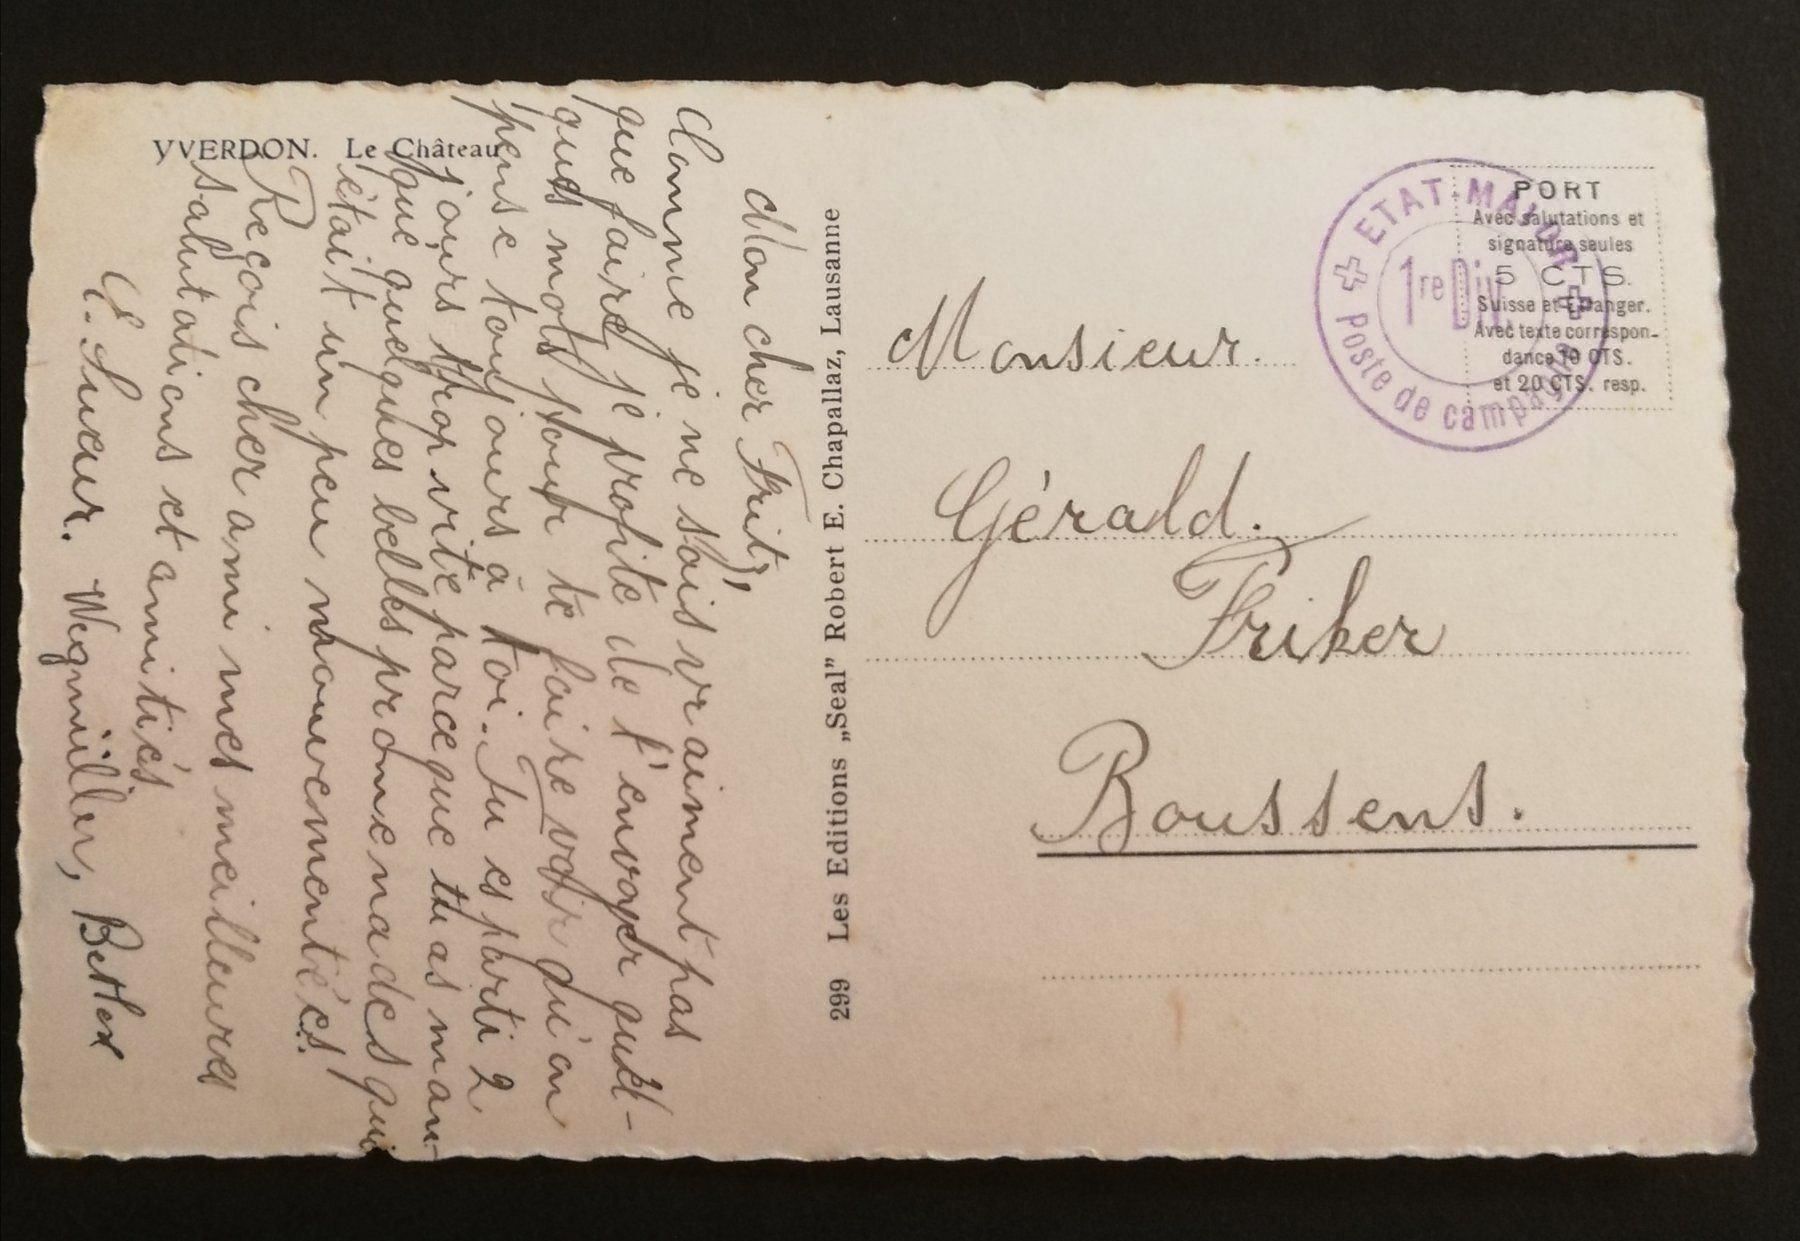 YVERDON. Le Château
Mon cher Fritz,
Comme je ne sais vraiment pas
que faire, je profite de t'envoyer quel-
ques mots pour te faire voir qu'on
pense toujours à toi. Tu es parti 2
jours trop vite parce que tu as man-
qué quelques belles promenades qui
était un peu mouvementées.
Reçois cher ami mes meilleures
salutations et amitiés
E. Sueur. Wegmüller,
299 Les Editions „Seal" Robert E. Chapallaz, Lausanne
ETAT-MAJOR
1re Div.
Poste de campagne
PORT
Avec salutations et
signature seules
5 CTS.
Suisse et Etranger.
Avec texte correspon-
dance 10 CTS.
et 20 CTS. resp.
Monsieur.
Gérald.
Friker
Boussens.